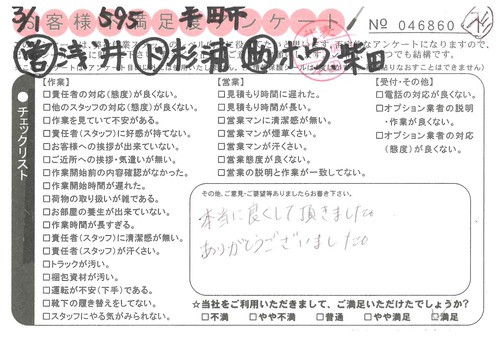 3/1 595
お客様満足度アンケート
No 046860
チェックリスト
【作業】
□責任者の対応(態度)が良くない。
□他のスタッフの対応(態度)が良くない。
□作業を見ていて不安がある。
□責任者(スタッフ)に好感が持てない。
□お客様への挨拶が出来ていない。
□ご近所への挨拶・気遣いが無い。
□作業開始前の内容確認がなかった。
□作業開始時間が遅れた。
□荷物の取り扱いが雑である。
□お部屋の養生が出来ていない。
□作業時間が長すぎる。
□責任者(スタッフ)に清潔感が無い。
□責任者(スタッフ)が汗くさい。
□トラックが汚い。
□梱包資材が汚い。
□運転が不安(下手)である。
□靴下の履き替えをしてない。
□スタッフにやる気がみられない。
【営業】
□見積もり時間に遅れた。
□見積もり時間が長い。
□営業マンに清潔感が無い。
□営業マンが煙草くさい。
□営業マンが汗くさい。
□営業態度が良くない。
□営業の説明と作業が一致してない。
【受付・その他】
□電話の対応が良くない。
□オプション業者の説明
・作業が良くない。
□オプション業者の対応
(態度)が良くない。
その他、ご意見・ご要望等ありましたらお書き下さい。
本当に良くして頂きました。
ありがとうございました。
☆当社をご利用いただきまして、ご満足いただけたでしょうか?
□不満 □やや不満 □普通 □やや満足 □満足